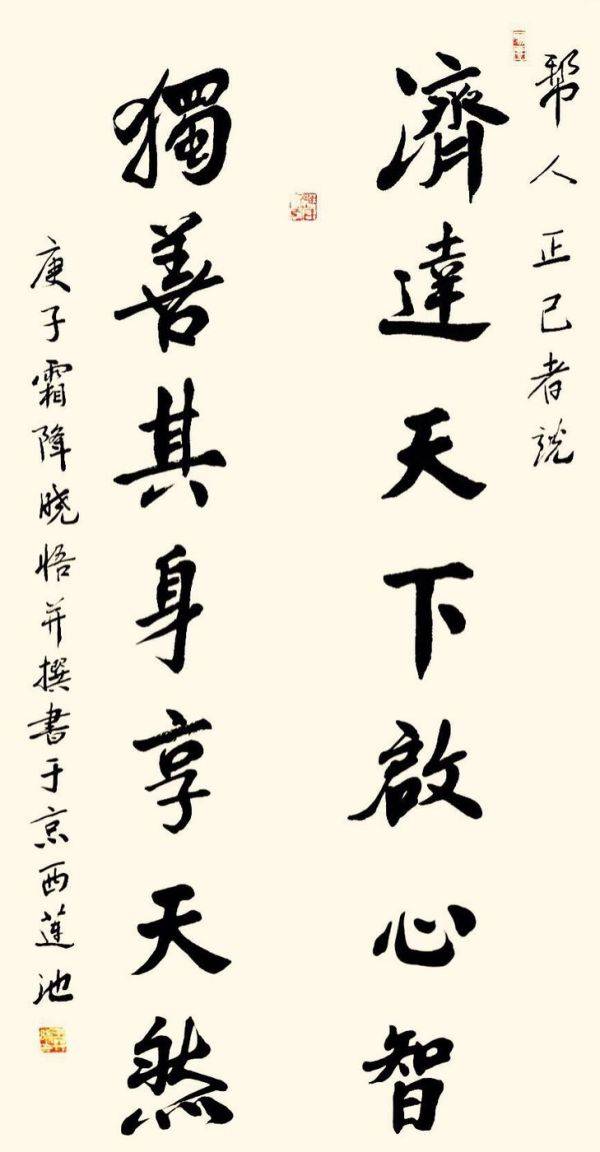 幫人正己者說
濟達天下啟心智
獨善其身享天然
庚子霜降晓悟并撰書于京西蓮池